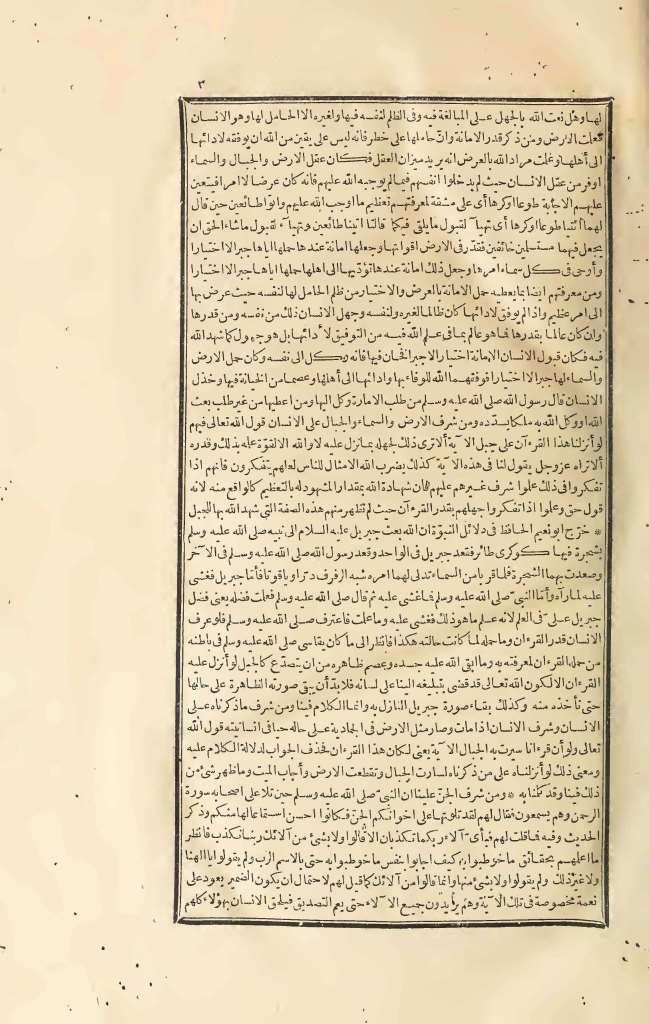 ٣
لها وهل نعت الله بالجهل على المبالغة فيه وفى الظلم لنفسه فيها ولغيره الا الحامل لها وهو الانسان
فعلمت الارض ومن ذكر قدر الامانة وان حاملها على خطر فانه ليس على يقين من الله ان يوفقه لادائها
الى أهلها وعلمت مراد الله بالعرض انه يريد ميزان العقل فكان عقل الارض والجبال والسماء
اوفر من عقل الانسان حيث لم يدخلوا انفسهم فيما لم يوجبه الله عليهم فانه كان عرضا لا امر افيتعين
عليهم الاجابة طوعا اوكرها أى على مشقة لمعرفتهم تعظيم ما اوجب الله عليهم واتوا طائعين حين قال
لهما ائتيا طوعا اوكرها أى تهيآ لقبول ما يلقى فيكما قالتا اتينا طائعين وتهيآ لقبول ما شاء الحق ان
يجعل فيهما مستسلمين خائفين فقدر فى الارض اقواتها وجعلها امانة عندها حملها اياها جبرا لا اختيارا
وأوحى فى كل سماء امرها وجعل ذلك امانة عندها تؤديها الى اهلها حملها اياها جبرا لا اختيارا
ومن معرفتهم ايضا بما يعطيه حمل الامانة بالعرض والاختيار من ظلم الحامل لها لنفسه حيث عرض بها
الى امر عظيم واذا لم يوفق لادائها كان ظالما لغيره ولنفسه وجهل الانسان ذلك من نفسه ومن قدرها
وان كان عالما بقدرها فما هو عالم بما فى علم الله فيه من التوفيق لأدائها بل هو جهول كما شهد الله
فيه فكان قبول الانسان الامانة اختيارا لا جبرا فخان فيها فانه وكل الى نفسه وكان حمل الارض
والسماء لها جبرا لا اختيارا فوفقهما الله للوفاء بها وادائها الى أهلها وعصما من الخيانة فيها وخذل
الانسان قال رسول الله صلى الله عليه وسلم من طلب الامارة وكل اليها ومن اعطيها من غير طلب بعث
الله او وكل الله به ملكا يسدده ومن شرف الارض والسماء والجبال على الانسان قول الله تعالى فيهم
لو أنزلنا هذا القرءآن على جبل الآية ألا ترى ذلك لجهله بما نزل عليه لا والله الا لقوة علمه بذلك وقدره
ألا تراه عزوجل يقول لنا فى هذه الآية كذلك يضرب الله الامثال للناس لعلهم يتفكرون فانهم اذا
تفكروا فى ذلك علموا شرف غيرهم عليهم فان شهادة الله بمقدار المشهود له بالتعظيم كالواقع منه لانه
قول حق وعلموا اذا تفكروا جهلهم بقدر القرءآن حيث لم تظهر منهم هذه الصفة التى شهد الله بها للجبل
* خرّج ابو نعيم الحافظ فى دلائل النبوّة ان الله بعث جبريل عليه السلام الى نبيه صلى الله عليه وسلم
بشجرة فيها كوكرى طائر فقعد جبريل فى الواحد وقعد رسول الله صلى الله عليه وسلم فى الآخر
وصعدت بهما الشجرة فلما قربا من السماء تدلى لهما امر شبه الرفرف درا وياقوتا فأما جبريل فغشى
عليه لما رآه وأما النبىّ صلى الله عليه وسلم فما غشى عليه ثم قال صلى الله عليه وسلم فعلمت فضله يعنى فضل
جبريل علىّ فى العلم لانه علم ما هو ذلك فغشى عليه وما علمت فاعترف صلى الله عليه وسلم فلو عرف
الانسان قدر القرءان وما حمله لما كانت حالته هكذا فانظر الى ما كان يقاسى صلى الله عليه وسلم فى باطنه
من حمله القرءان لمعرفته به وما ابقى الله عليه جسده وعصم ظاهره من ان يتصدّع كالجبل لو أنزل عليه
القرءان الا لكون الله تعالى قد قضى بتبليغه الينا على لسانه فلا بدّ أن يبقى صورته الظاهرة على حالها
حتى نأخذه منه وكذلك بقاء صورة جبريل النازل به وانما الكلام فينا ومن شرف ما ذكرناه على
الانسان وشرف الانسان اذا مات وصار مثل الارض فى الجمادية على حاله حيا فى انسانيته قول الله
تعالى ولو أن قرءانا سيرت به الجبال الآية يعنى لكان هذا القرءان فحذف الجواب لدلالة الكلام عليه
ومعنى ذلك لو أنزلناه على من ذكرناه لسارت الجبال وتقطعت الارض وأجاب الميت وما ظهر شئ من
ذلك فينا وقد كلمنا به * ومن شرف الجنّ علينا ان النبىّ صلى الله عليه وسلم حين تلا على اصحابه سورة
الرحمن وهم يسمعون فقال لهم لقد تلوتها على اخوانكم الجنّ فكانوا احسن استماعا لها منكم وذكر
الحديث وفيه فما قلت لهم فبأىّ آلاء ربكما تكذبان الا قالوا ولا بشئ من آلائك ربنا نكذب فانظر
ما اعلمهم بحقائق ما خوطبوا به كيف اجابوا بنفس ما خوطبوا به حتى بالاسم الرب ولم يقولوا يا الهنا
ولا غير ذلك ولم يقولوا ولا بشئ منها وانما قالوا من آلائك كما قيل لهم لاحتمال ان يكون الضمير يعود على
نعمة مخصوصة فى تلك الآية وهم يريدون جميع الآلاء حتى يعم التصديق فيلحق الانسان بهؤلاء كلهم